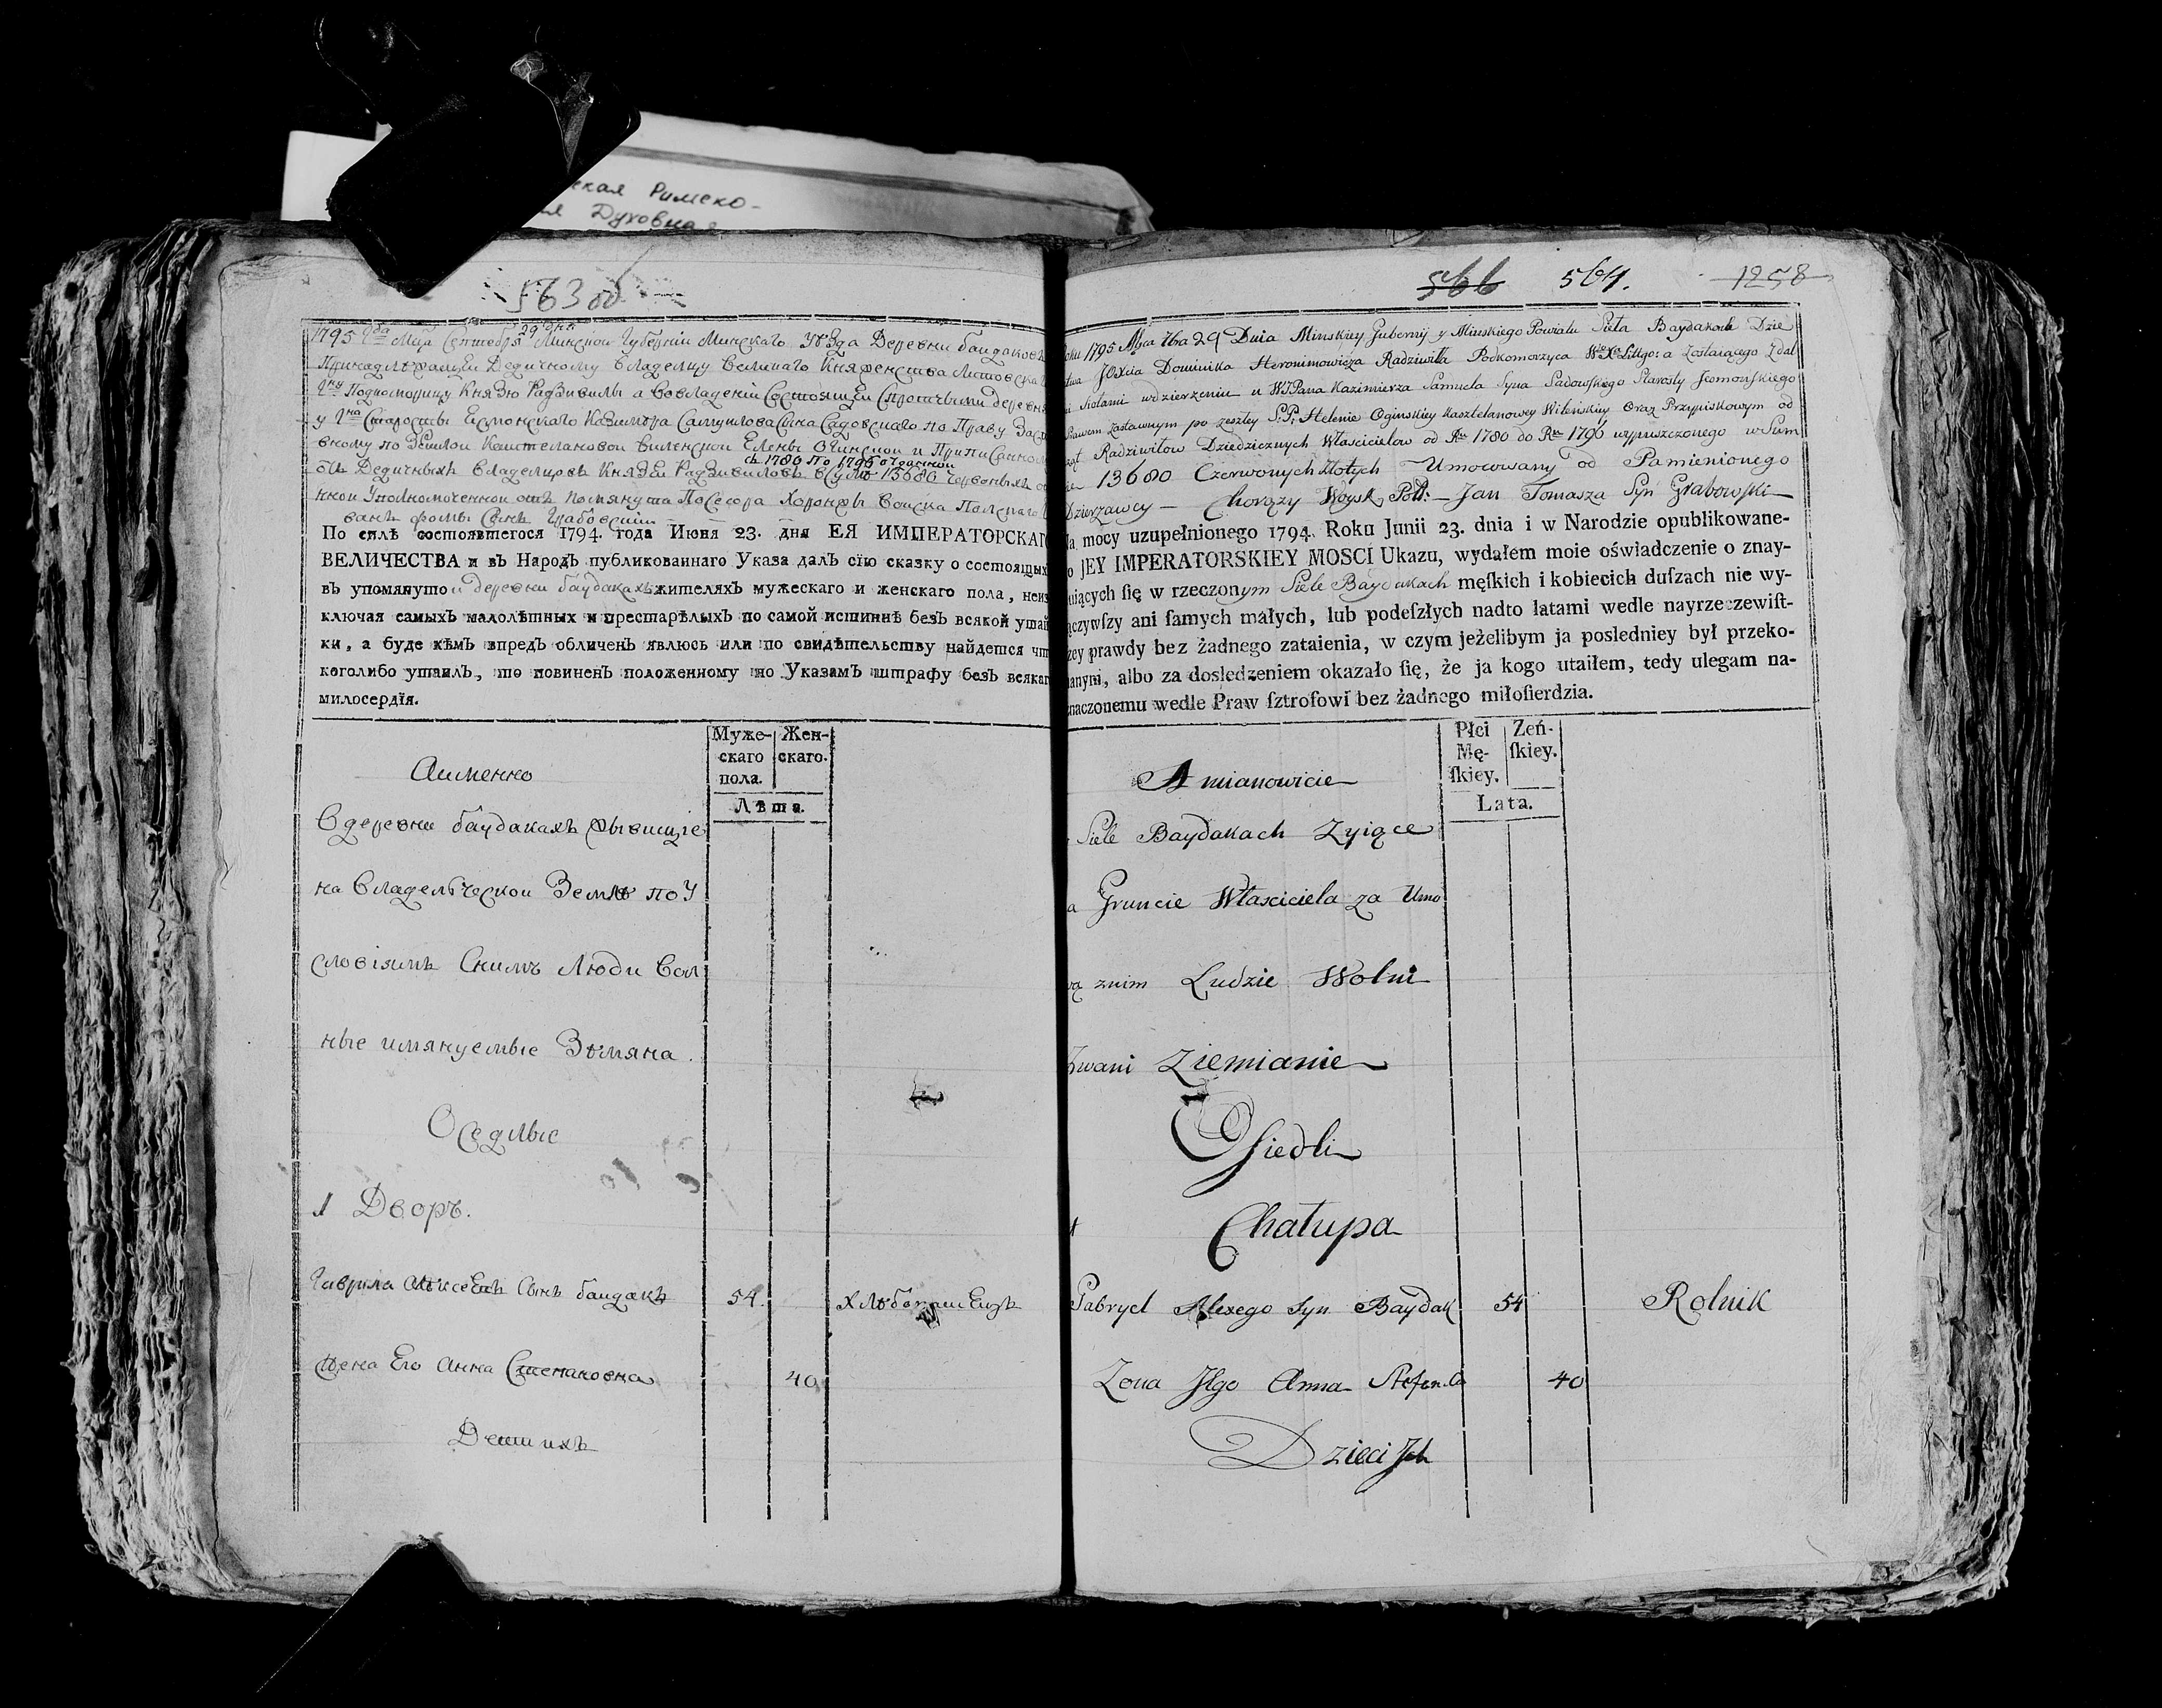 ская Римско-
ая Духовная
56300
1795 года Мсца Сентебря 29 дня Минской Губерніи Минскаго Уѣзда Деревни Байдаковъ
Принадлежащей Дедичному Владелцу Великаго Княженства Литовска
Подкоморицу Князю Радзивилы а вовладеніи Состоящей Спротчыми деревня
у Старосты Есмонскаго Казимѣра Самуилова Сына Садовскаго по Праву Заста
вному по Зешлой Каштелановой Виленской Елены Огинской и Приписанно
съ 1780 по 1796
отъ Дедичныхъ Владелцовъ Князей Радзивиловъ всумѣ 13680 Червоныхъ
нной Уполномоченной отъ помянута Посесора Хоронжы Войска Полскаго
ванъ фомы Сынъ Грабовскій
По силѣ состоявшегося 1794 года Июня 23. дня ЕЯ ИМПЕРАТОРСКАГ
ВЕЛИЧЕСТВА и въ Народъ публикованнаго Указа далъ сїю сказку о состоящыхъ
въ упомянутой деревни байдакахъ жителяхъ мужескаго и женскаго пола, неиз
ключая самыхъ малолѣтныхъ и престарѣлыхъ по самой истиннѣ безъ всякой утай
ки, а буде кѣмъ впредъ обличенъ явлюсь или по свидѣтельству найдется чт
коголибо утаилъ, то повиненъ положенному по Указамъ штрафу безъ всякаг
милосердїя.
Муже-
скаго
пола.
Жен-
скаго.
Лѣта.
Аименно
Вдеревни байдакахъ жывищіе
на Владельческой Землѣ поу
словіямъ Снимъ Люди Вол
ные имянуемые Зѣмяна.
Оседлые
1 Дворъ.
Гаврила Алексеевъ Сынъ байдакъ 54. Хлѣбопашецъ
Жена Его Анна Степановна 40
Дети ихъ
566 564. 1258
oku 1795 Msca 7bra 29 Dnia Minskiey Gubernij y Minskiego Powiatu Sieła Baydakow Dzie
twa JOXcia Dominika Heronimowicza Radziwiłła Podkomorzyca WoXo Littgo: a Zostaiącego Zdal
Siołami wdzierzeniu u WJPana Kazimierza Samuela Syna Sadowskiego Starosty Jesmonskiego
Prawem zastawnym po zeszłey S.P. Helenie Oginskiey Kasztelanowey Wileńskiey Oraz Przypiskowym od
Xiąt Radziwiłow Dziedzicznych Włascicielow od Rku 1780 do Rku 1796 wypuszczonego w Sum
13680 Czerwonych Złotych Umocowany od Pamienionego
Dzierzawcy — Chorąży Woysk Pol: — Jan Tomasza Syn Grabowski
Na mocy uzupełnionego 1794. Roku Junii 23. dnia i w Narodzie opublikowane-
o JEY IMPERATORSKIEY MOSCI Ukazu, wydałem moie oświadczenie o znay-
uiących ſię w rzeczonym Siele Baydakach męſkich i kobiecich duſzach nie wy-
ączywſzy ani ſamych małych, lub podeſzłych nadto latami wedle nayrzeczewiſt-
zey prawdy bez żadnego zataienia, w czym jeżelibym ja posledniey był przeko-
nanym, albo za dosledzeniem okazało ſię, że ja kogo utaiłem, tedy ulegam na-
znaczonemu wedle Praw ſztrofowi bez żadnego miłoſierdzia.
Płci
Mę-
ſkiey.
Zeń-
ſkiey.
Lata.
A mianowicie
Siele Baydakach Zyiące
a Gruncie Własciciela za Umo
wą znim Ludzie Wolni
Zwani Ziemianie
Osiedli
1 Chałupa
Gabryel Alexego Syn Baydak 54 Rolnik
Zona Jego Anna Stefan.Ca 40
Dzieci Jch